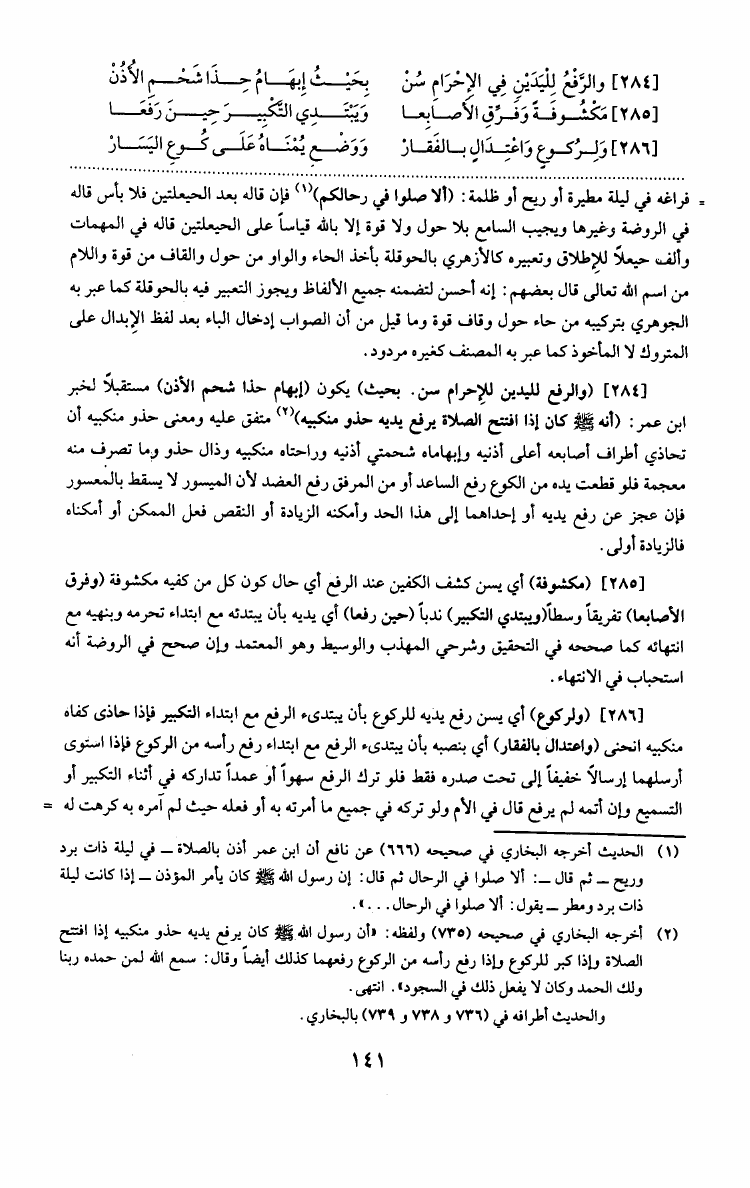 [٢٨٤] والرَّفْعُ لِلْيَدَيْنِ فِي الإِحْرَامِ سُنْ بِحَيْـثُ إِبْهَـامُ حِـذَا شَحْـمِ الأُذُنْ
[٢٨٥] مَكْشُوفَـةً وَفَـرِّقِ الأَصَـابِعـا وَيَبْتَـدِي التَّكْبِيـرَ حِيـنَ رَفَعَـا
[٢٨٦] وَلِـرُكُـوعٍ وَاعْتِـدَالٍ بـالفَقَـارْ وَوَضْـعِ يُمْنَـاهُ عَلَـى كُـوعِ اليَسَـارْ
= فراغه في ليلة مطيرة أو ريح أو ظلمة: (ألا صلوا في رحالكم)(١) فإن قاله بعد الحيعلتين فلا بأس قاله
في الروضة وغيرها ويجيب السامع بلا حول ولا قوة إلا بالله قياساً على الحيعلتين قاله في المهمات
وألف حيعلاً للإطلاق وتعبيره كالأزهري بالحوقلة بأخذ الحاء والواو من حول والقاف من قوة واللام
من اسم الله تعالى قال بعضهم: إنه أحسن لتضمنه جميع الألفاظ ويجوز التعبير فيه بالحوقلة كما عبر به
الجوهري بتركيبه من حاء حول وقاف قوة وما قيل من أن الصواب إدخال الباء بعد لفظ الإبدال على
المتروك لا المأخوذ كما عبر به المصنف كغيره مردود.
[٢٨٤] (والرفع لليدين للإحرام سن. بحيث) يكون (إبهام حذا شحم الأذن) مستقبلاً لخبر
ابن عمر: (أنه ﷺ كان إذا افتتح الصلاة يرفع يديه حذو منكبيه)(٢) متفق عليه ومعنى حذو منكبيه أن
تحاذي أطراف أصابعه أعلى أذنيه وإبهاماه شحمتي أذنيه وراحتاه منكبيه وذال حذو وما تصرف منه
معجمة فلو قطعت يده من الكوع رفع الساعد أو من المرفق رفع العضد لأن الميسور لا يسقط بالمعسور
فإن عجز عن رفع يديه أو إحداهما إلى هذا الحد وأمكنه الزيادة أو النقص فعل الممكن أو أمكناه
فالزيادة أولى.
[٢٨٥] (مكشوفة) أي يسن كشف الكفين عند الرفع أي حال كون كل من كفيه مكشوفة (وفرق
الأصابعا) تفريقاً وسطاً(ويبتدي التكبير) ندباً (حين رفعا) أي يديه بأن يبتدئه مع ابتداء تحرمه وينهيه مع
انتهائه كما صححه في التحقيق وشرحي المهذب والوسيط وهو المعتمد وإن صحح في الروضة أنه
استحباب في الانتهاء.
[٢٨٦] (ولركوع) أي يسن رفع يديه للركوع بأن يبتدىء الرفع مع ابتداء التكبير فإذا حاذى كفاه
منكبيه انحنى (واعتدال بالفقار) أي بنصبه بأن يبتدىء الرفع مع ابتداء رفع رأسه من الركوع فإذا استوى
أرسلهما إرسالاً خفيفاً إلى تحت صدره فقط فلو ترك الرفع سهواً أو عمداً تداركه في أثناء التكبير أو
التسميع وإن أتمه لم يرفع قال في الأم ولو تركه في جميع ما أمرته به أو فعله حيث لم آمره به كرهت له =
(١) الحديث أخرجه البخاري في صحيحه (٦٦٦) عن نافع أن ابن عمر أذن بالصلاة ــ في ليلة ذات برد
وريح ــ ثم قال ــ: ألا صلوا في الرحال ثم قال: إن رسول الله ﷺ كان يأمر المؤذن ــ إذا كانت ليلة
ذات برد ومطر ــ يقول: ألا صلوا في الرحال...».
(٢) أخرجه البخاري في صحيحه (٧٣٥) ولفظه: «أن رسول الله ﷺ كان يرفع يديه حذو منكبيه إذا افتتح
الصلاة وإذا كبر للركوع وإذا رفع رأسه من الركوع رفعهما كذلك أيضاً وقال: سمع الله لمن حمده ربنا
ولك الحمد وكان لا يفعل ذلك في السجود». انتهى.
والحديث أطرافه في (٧٣٦ و ٧٣٨ و ٧٣٩) بالبخاري.
١٤١